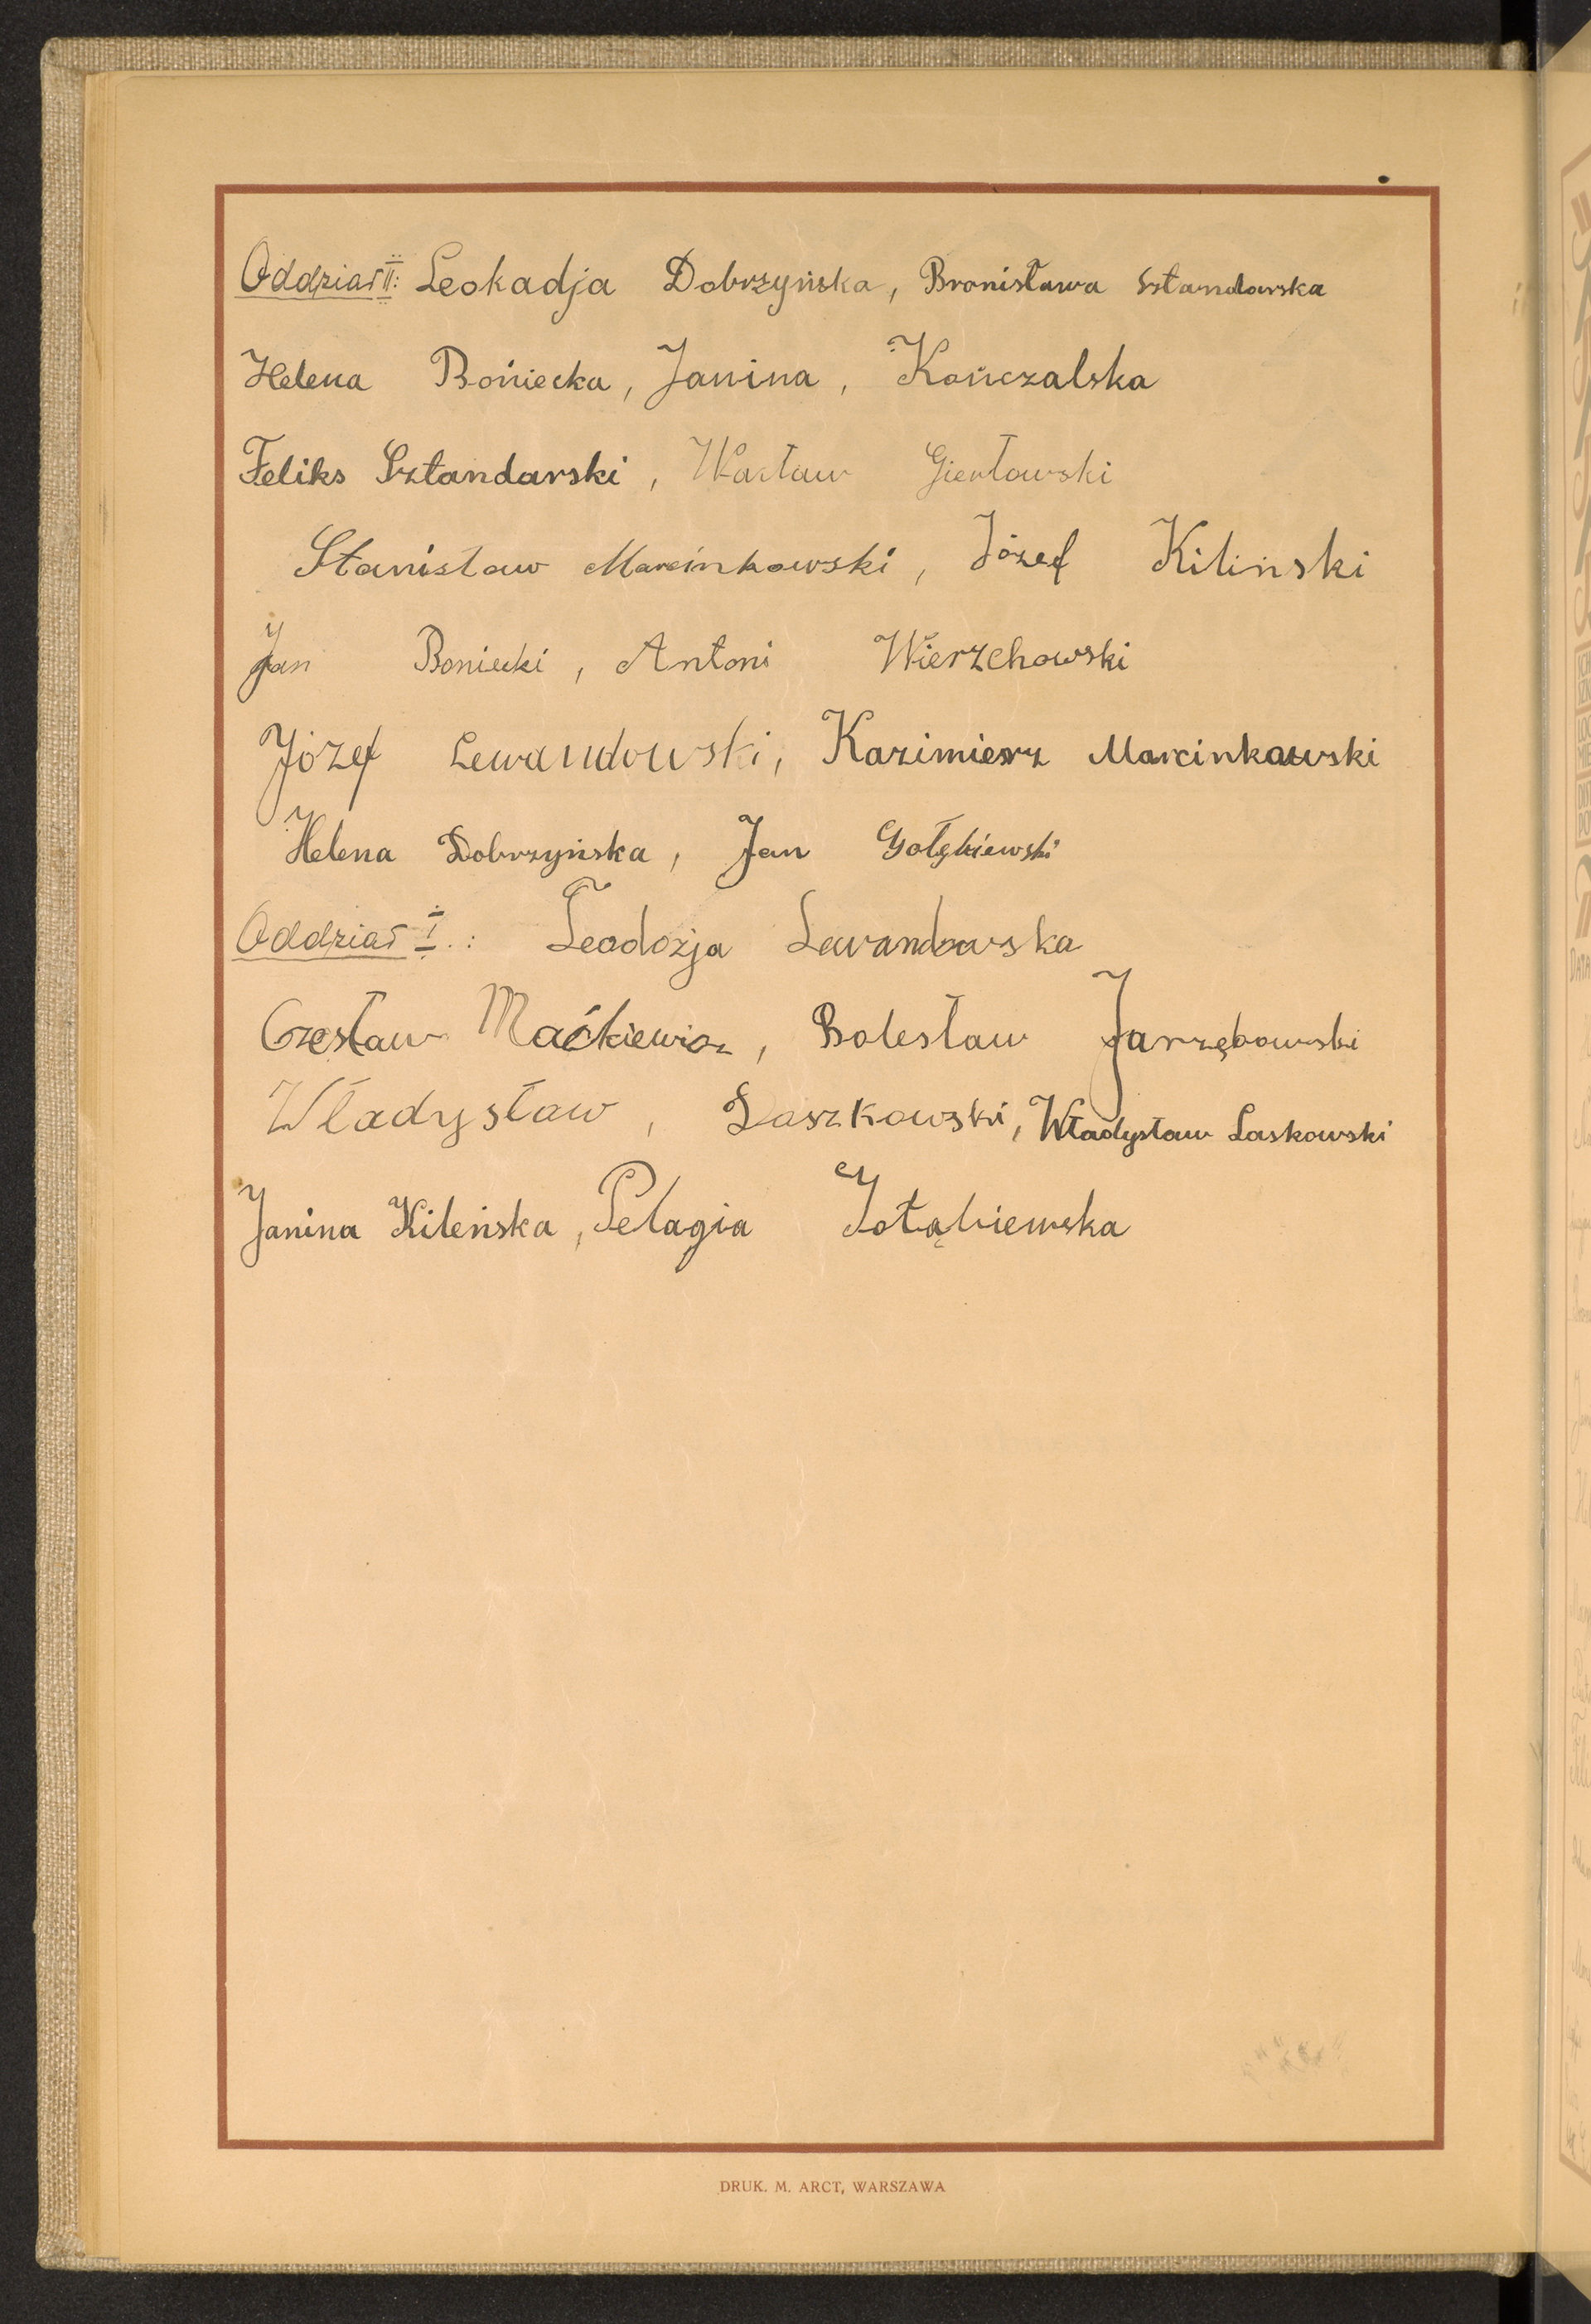 Oddział II: Leokadja Dobrzyńska, Bronisława Sztandarska
Helena Bońiecka, Janina, Kończalska
Feliks Sztandarski, Wacław Giertowski
Stanisław Marcinkowski, Józef Kiliński
Jan Boniecki, Antoni Wierzchowski
Józef Lewandowski, Kazimierz Marcinkowski
Helena Dobrzyńska, Jan Gołębiewski
Oddział I.: Teodozja Lewandowska
Czesław Maćkiewicz, Bolesław Jarzębowski
Władysław, Daszkowski, Władysław Laskowski
Janina Kileńska, Pelagia Gołąbiewska
DRUK. M. ARCT, WARSZAWA